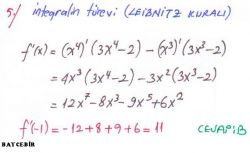 5/ integralin türevi (LEIBNITZ KURALI)
f'(x) = (x⁴)' (3x⁴-2) - (x³)' (3x³-2)
= 4x³ (3x⁴-2) - 3x² (3x³-2)
= 12x⁷ - 8x³ - 9x⁵ + 6x²
f'(-1) = -12+8+9+6 = 11 CEVAP: B
BATCEBİR